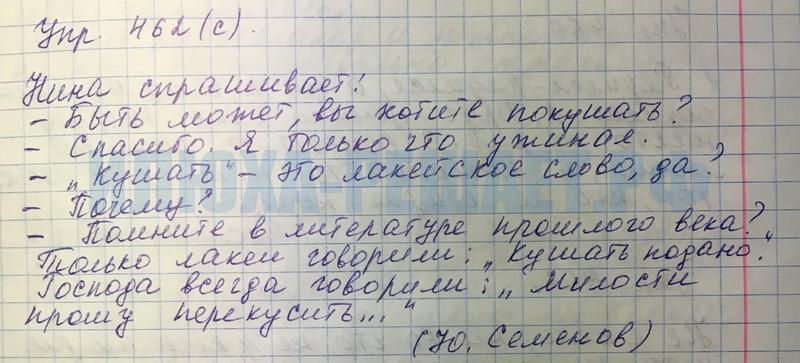 Упр. 462(с).
Нина спрашивает:
– Быть может, вы хотите покушать?
– Спасибо. Я только что ужинал.
– „Кушать" – это лакейское слово, да?
– Почему?
– Помните в литературе прошлого века?
Только лакеи говорили: „Кушать подано".
Господа всегда говорили: „Милости
прошу перекусить..."
(Ю. Семенов)